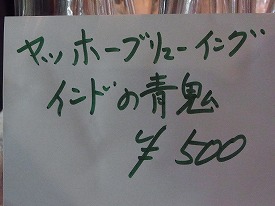 ヤッホーブリューイング
インドの青鬼
¥500